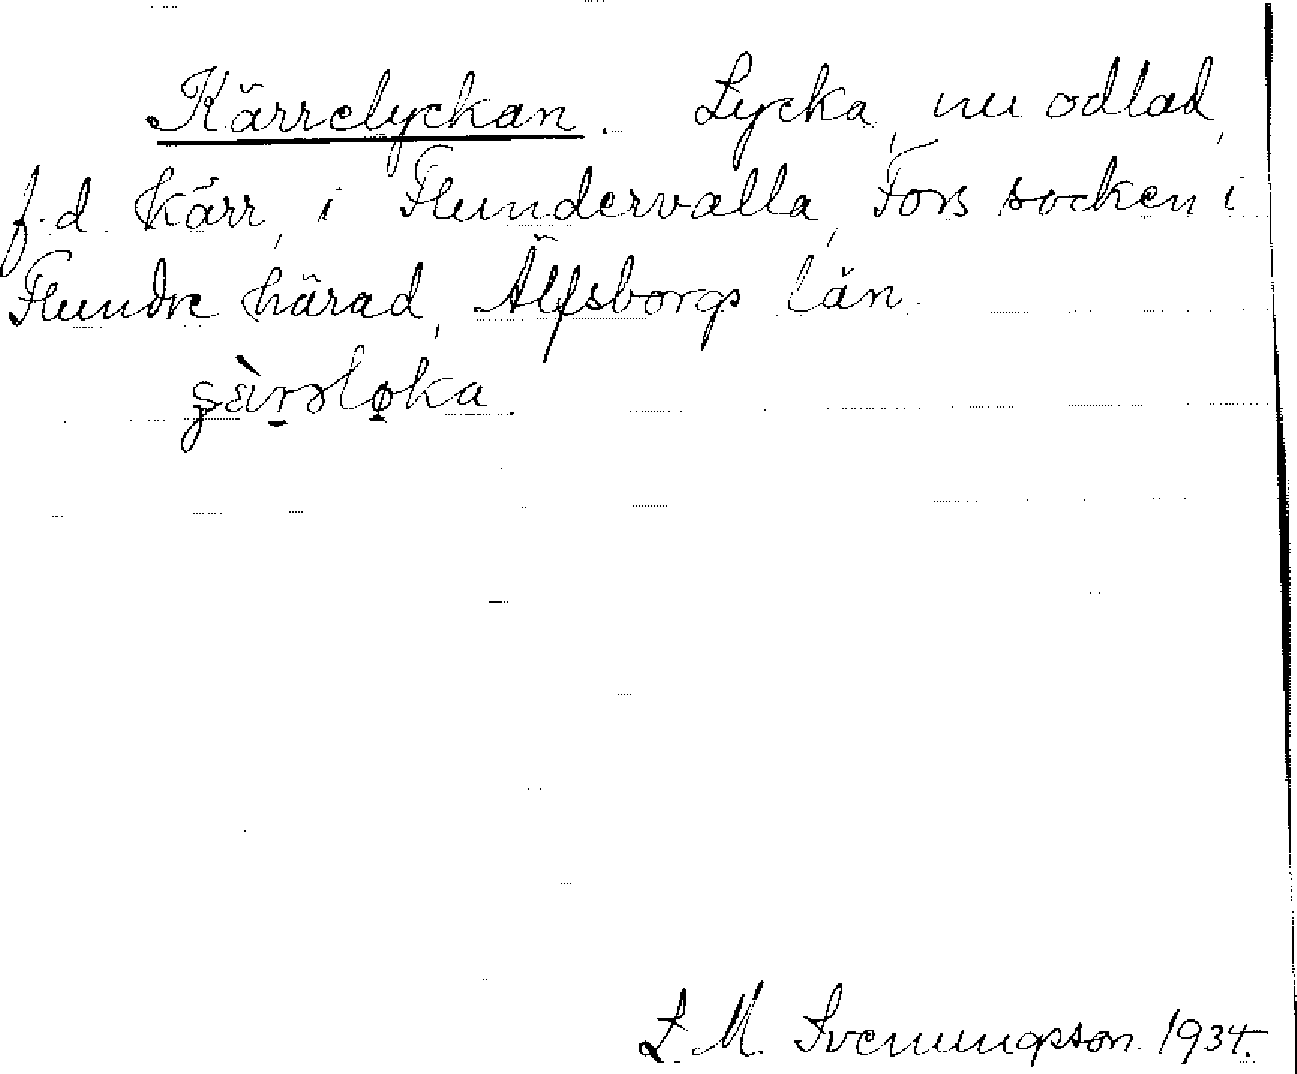 Kärrelyckan. Lycka, nu odlad,
f.d. kärr, i Flundervalla, Fors socken i
Flundre härad, Älfsborgs län.
L. M. Svenungsson. 1934.